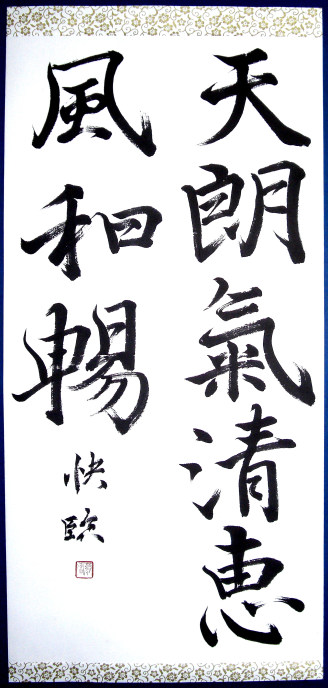 天朗氣清恵
風和暢
快臨